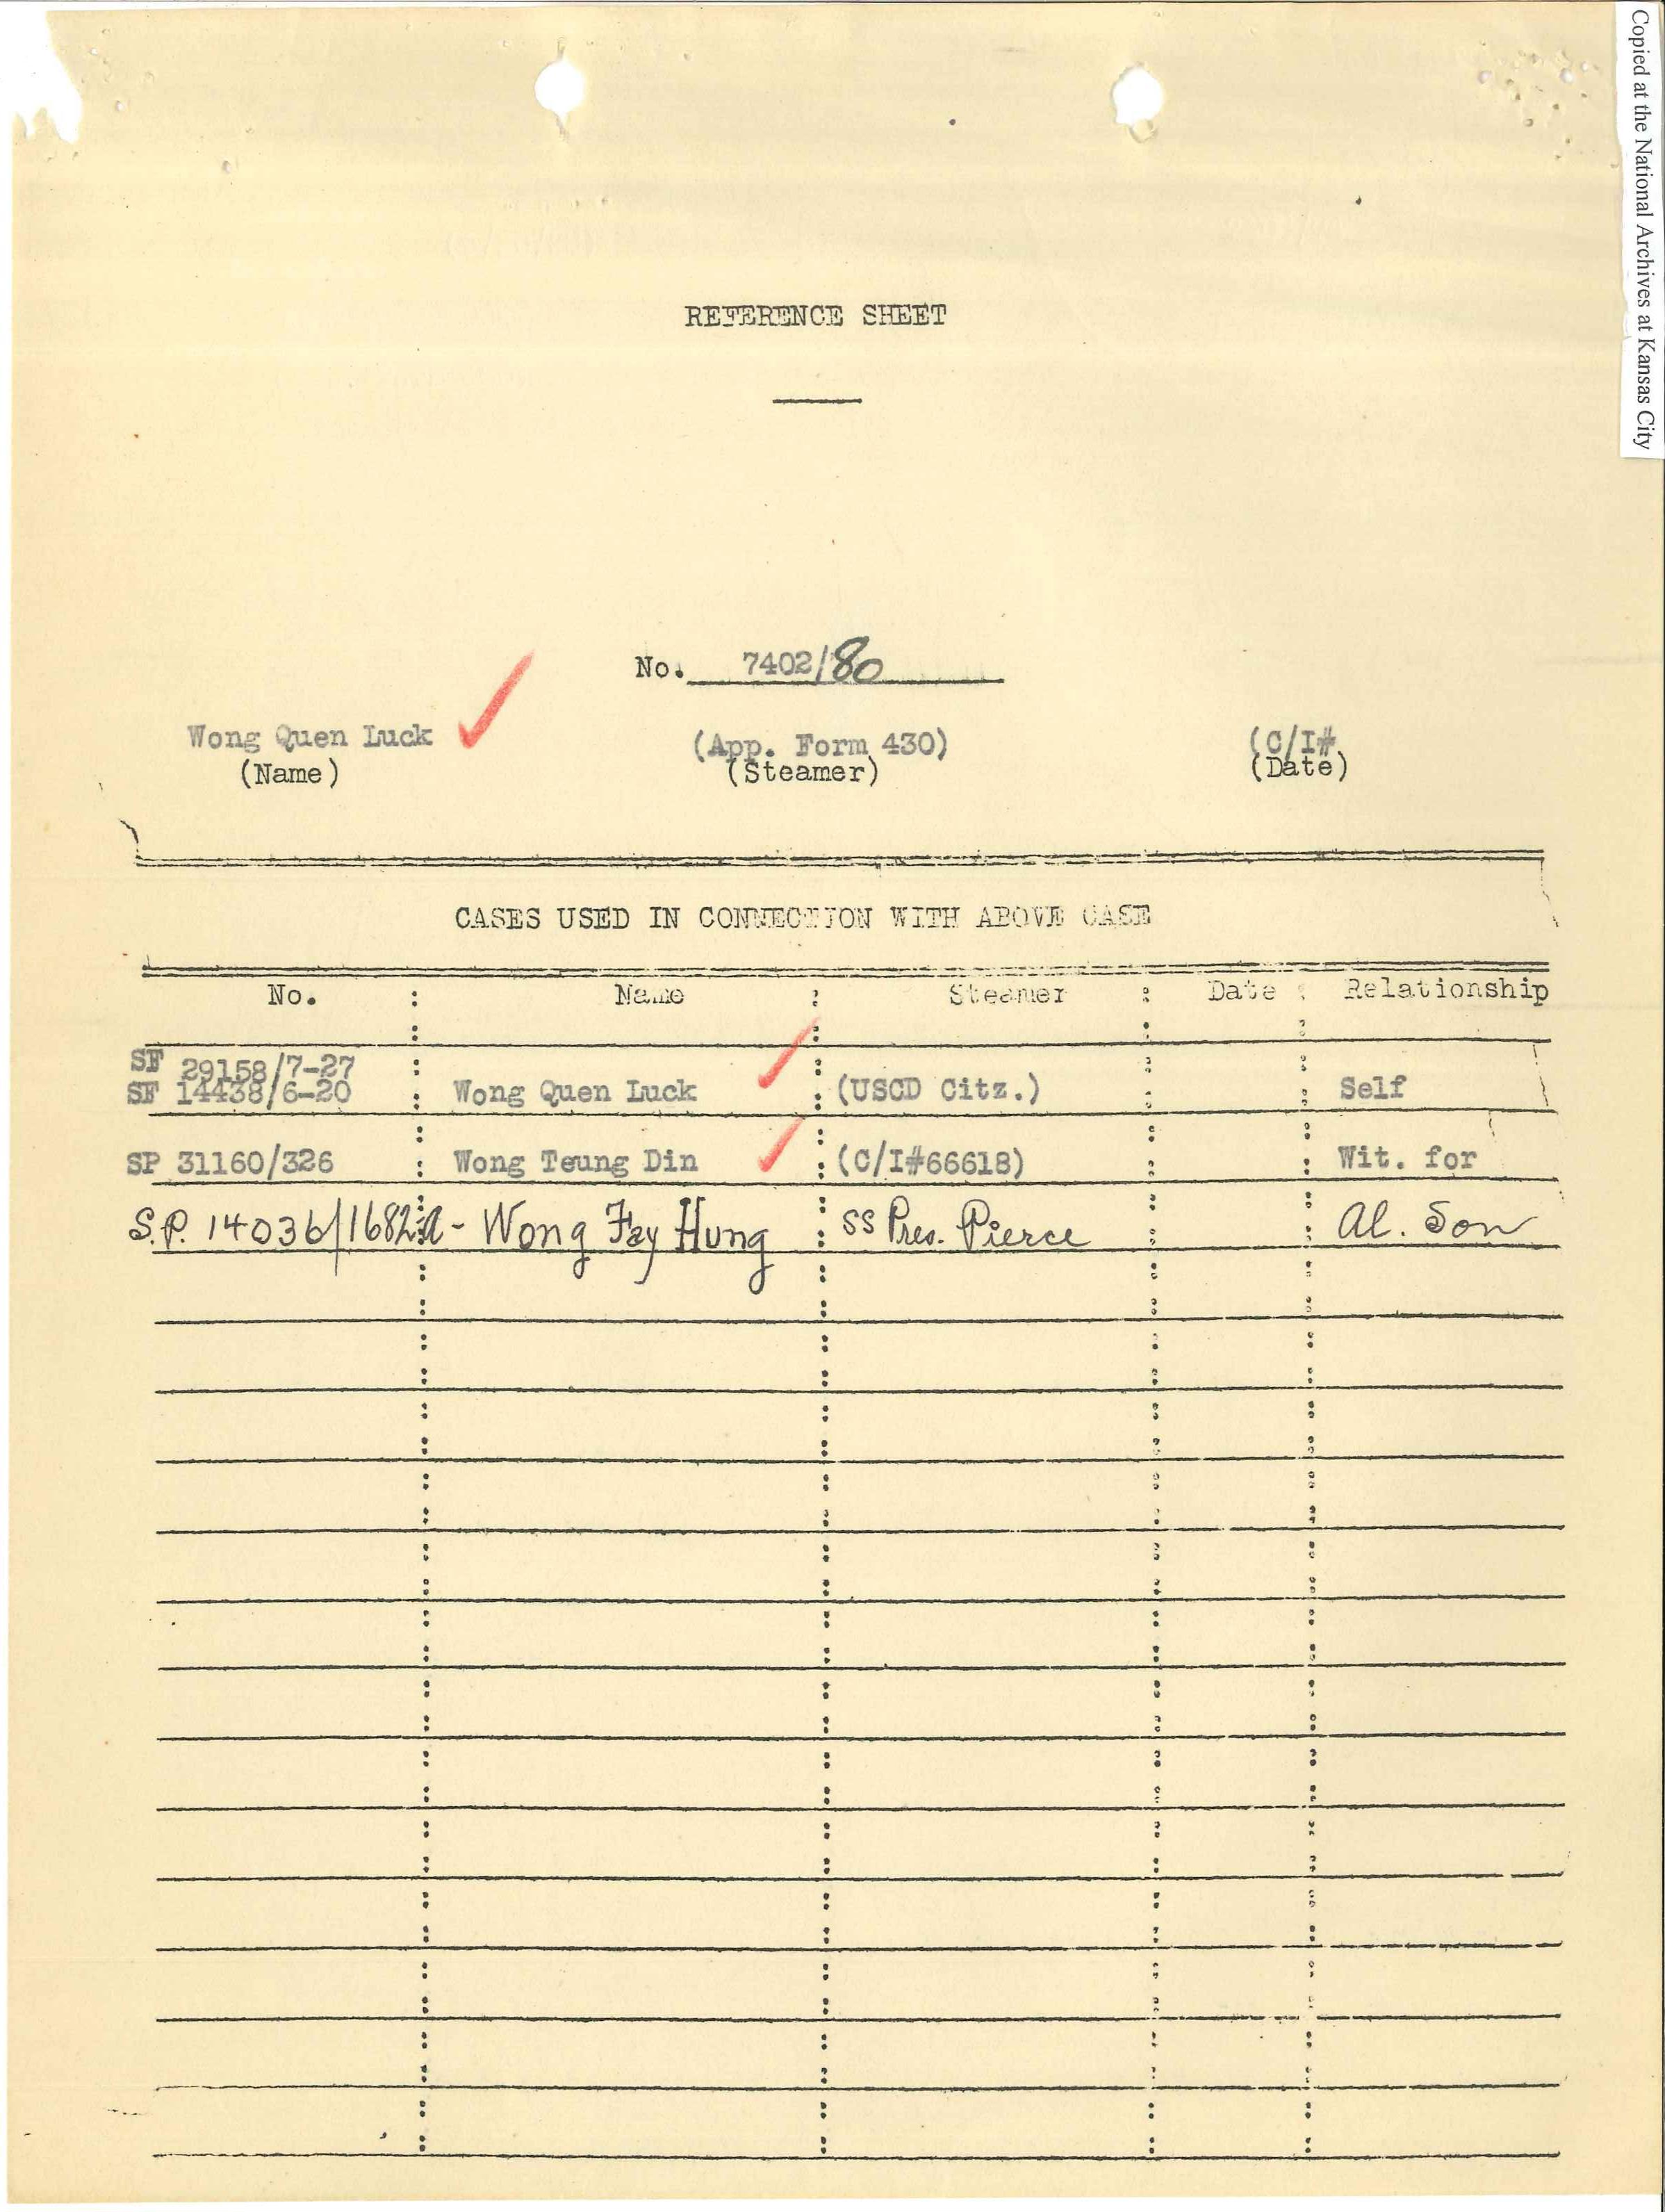 Copied at the National Archives at Kansas City
REFERENCE SHEET
No. 7402/80
Wong Quen Luck (App. Form 430) (C/I#
(Name) (Steamer) (Date)
CASES USED IN CONNECTION WITH ABOVE CASE
No. : Name : Steamer : Date : Relationship
SF 29158/7-27
SF 14438/6-20 : Wong Quen Luck : (USCD Citz.) : : Self
SP 31160/326 : Wong Teung Din : (C/I#66618) : : Wit. for
S.P. 14036/1682 - Wong Fay Hung : SS Pres. Pierce : : Al. Son